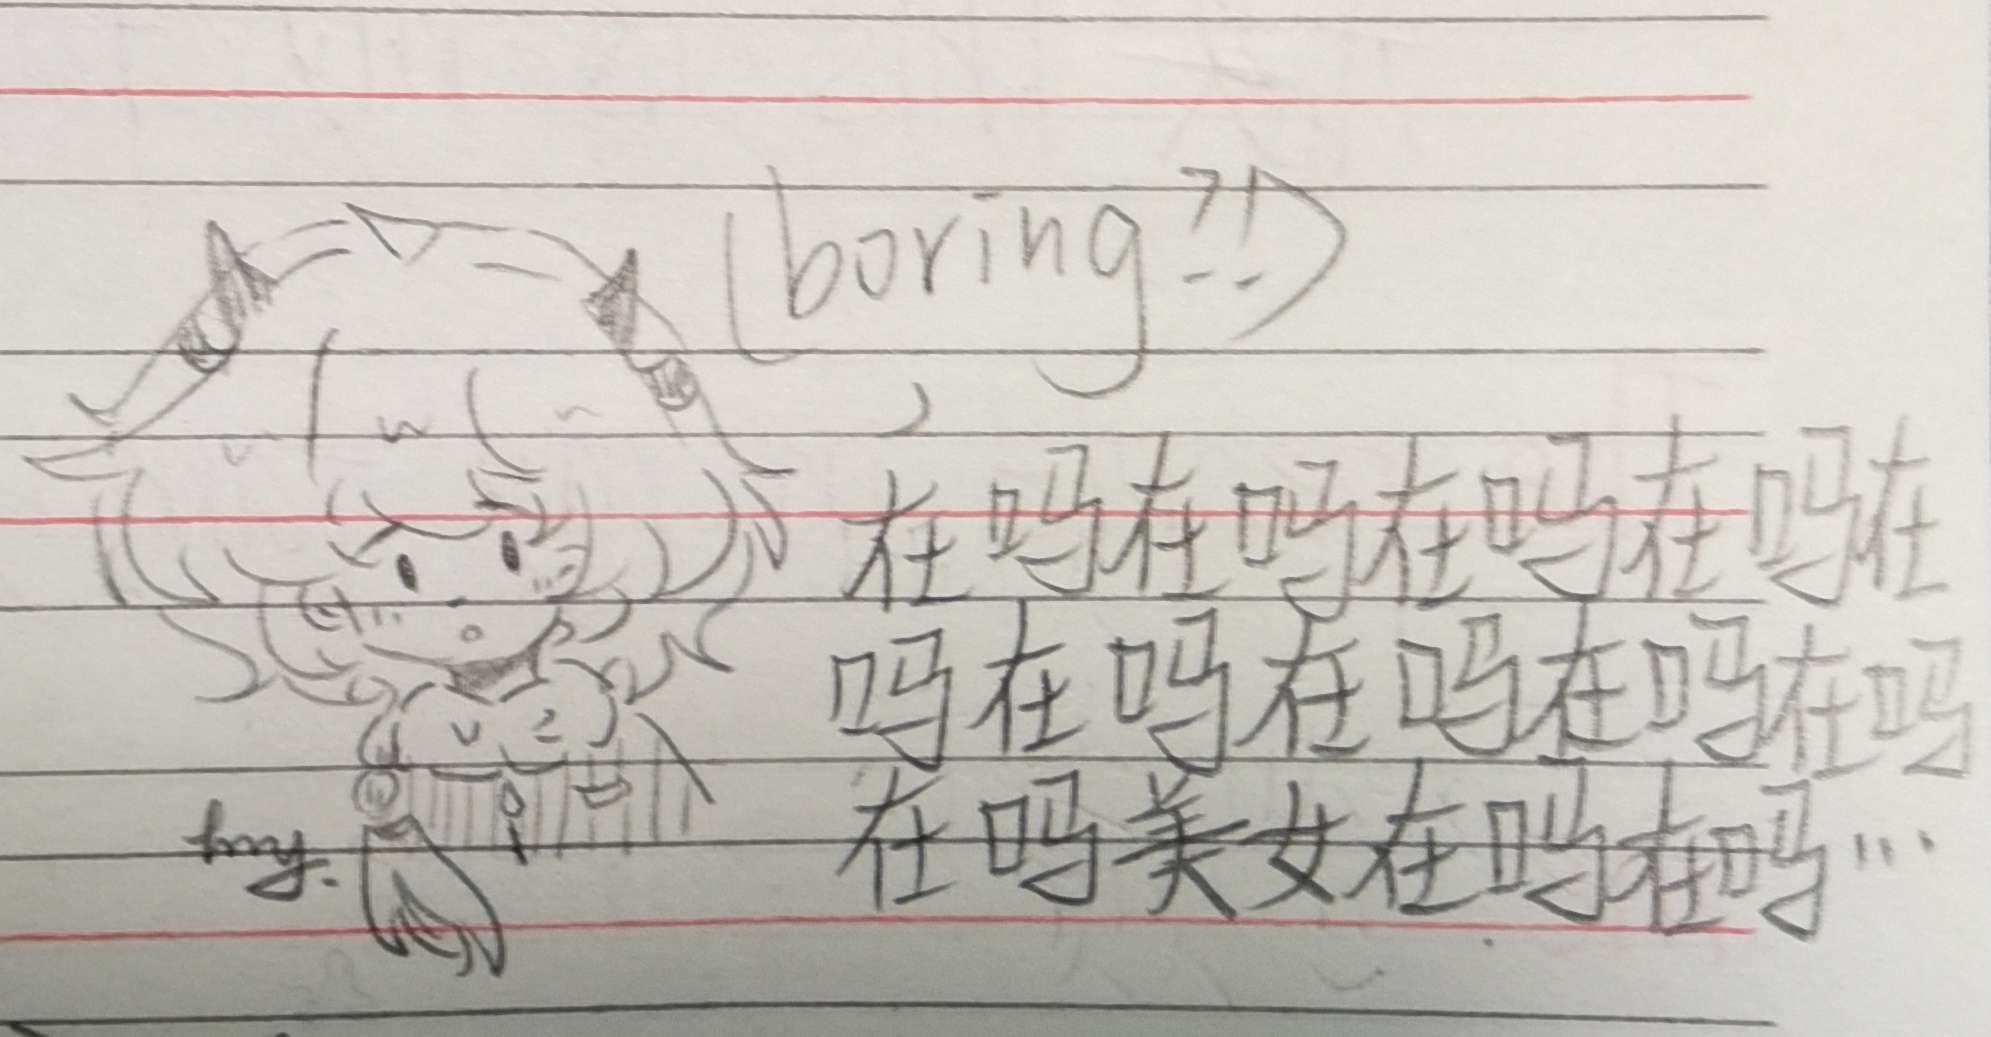 (boring?!)
在吗在吗在吗在吗在
吗在吗在吗在吗在吗
在吗美女在吗在吗…